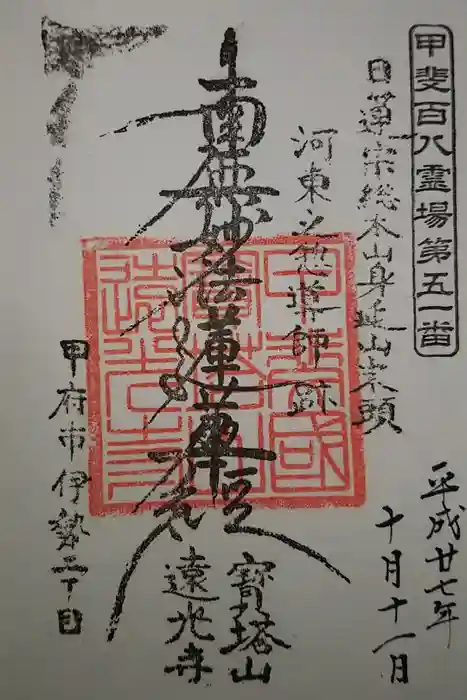 甲斐百八霊場第五一番
日蓮宗総本山身延山末頭
河東之惣導師跡
平成廿七年
十月十一月
南無妙法蓮華経
寶塔山
遠光寺
甲府市伊勢二丁目